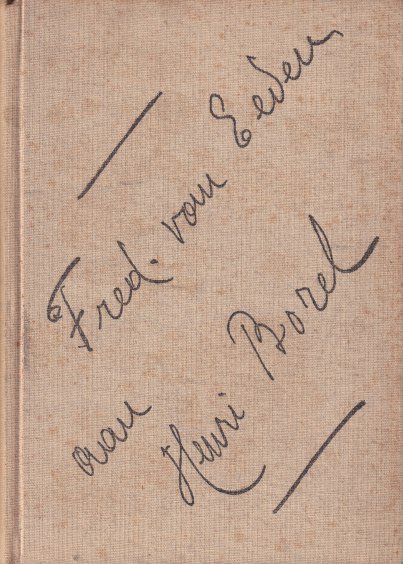 Fred. van Eeden
aan
Henri Borel